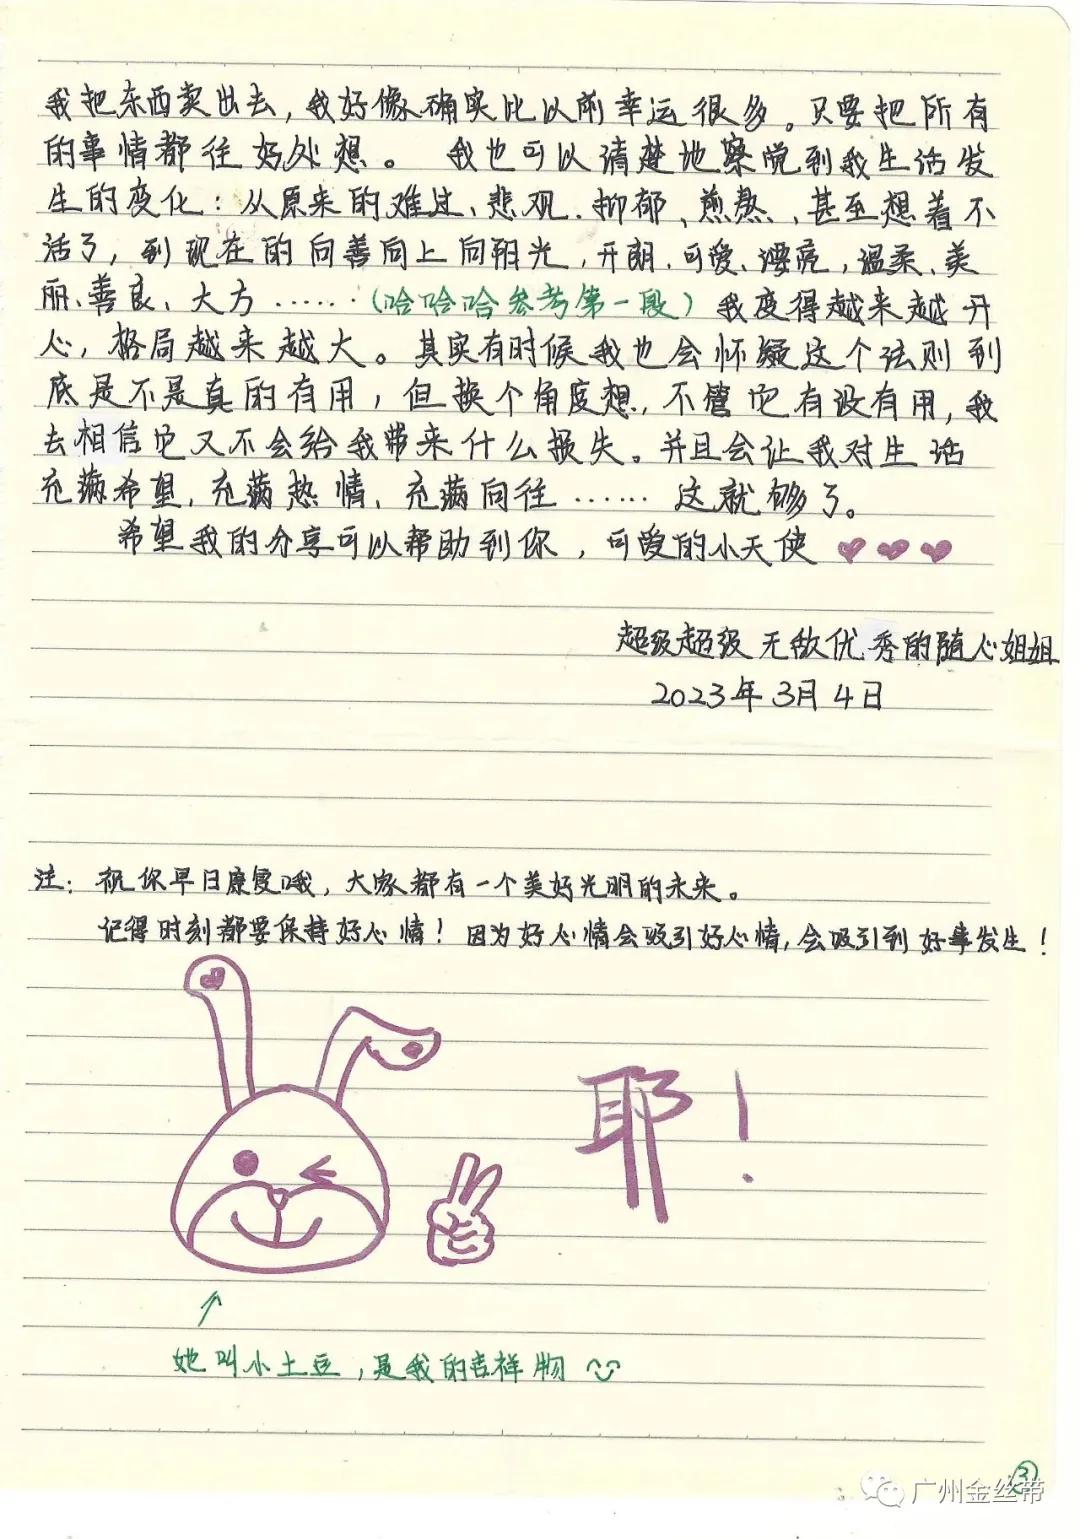 我把东西卖出去,我好像确实比以前幸运很多。只要把所有
的事情都往好处想。 我也可以清楚地察觉到我生活发
生的变化:从原来的难过、悲观、抑郁、煎熬、甚至想着不
活了,到现在的向善向上向阳光,开朗、可爱、漂亮,温柔、美
丽、善良、大方……(哈哈哈参考第一段)我变得越来越开
心,格局越来越大。其实有时候我也会怀疑这个法则到
底是不是真的有用,但换个角度想,不管它有没有用,我
去相信它又不会给我带来什么损失。并且会让我对生活
充满希望,充满热情、充满向往……这就够了。
希望我的分享可以帮助到你,可爱的小天使
超级超级无敌优秀的随心姐姐
2023年3月4日
注:祝你早日康复哦,大家都有一个美好光明的未来。
记得时刻都要保持好心情!因为好心情会吸引好心情,会吸引到好事发生!
耶!
她叫小土豆,是我的吉祥物
③
广州金丝带